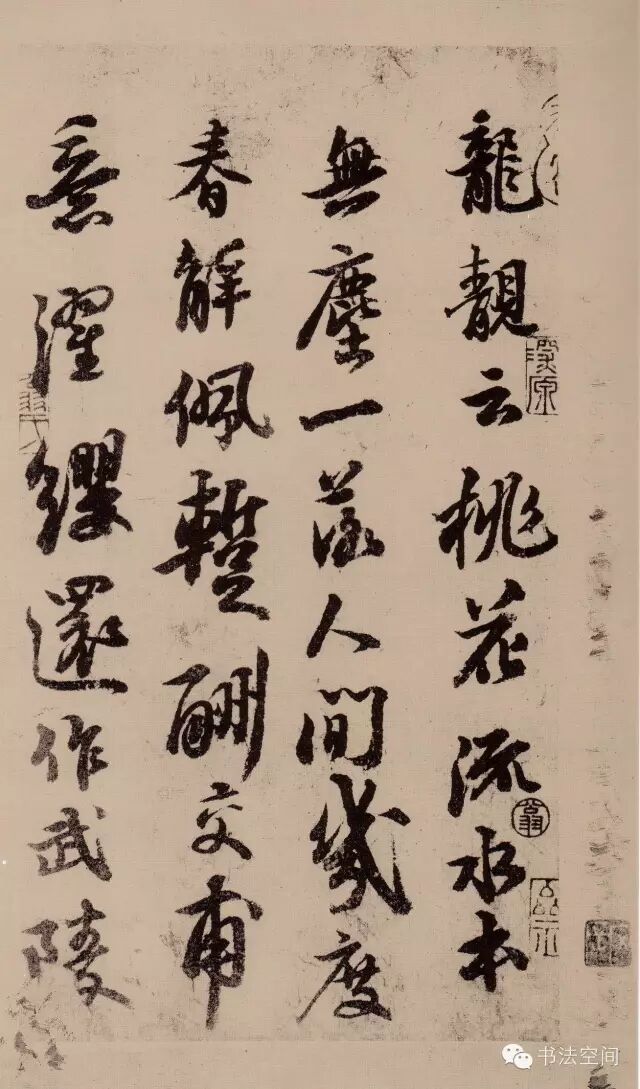 龍靚云桃花流水本
無塵一落人間幾度
春解佩蹔酬交甫
意濯纓還作武陵
书法空间